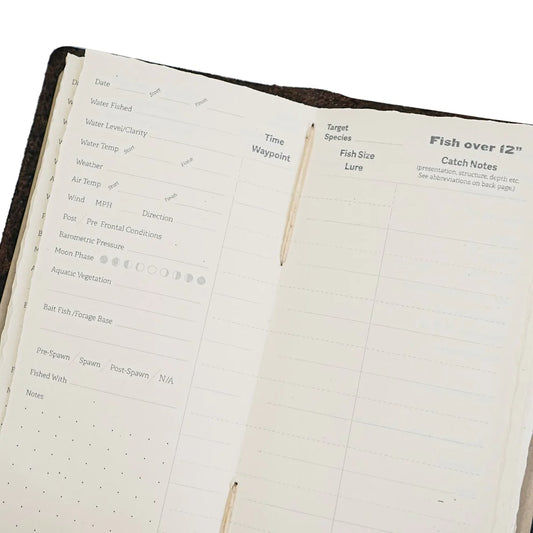 Date Start Finish
Water Fished
Water Level/Clarity
Water Temp Start Finish
Weather
Air Temp Start Finish
Wind MPH Direction
Post / Pre Frontal Conditions
Barometric Pressure
Moon Phase
Aquatic Vegetation
Bait Fish/Forage Base
Pre-Spawn / Spawn / Post-Spawn / N/A
Fished With
Notes
Time
Waypoint
Target
Species
Fish Size
Lure
Fish over 12”
Catch Notes
(presentation, structure, depth etc.
See abbreviations on back page.)